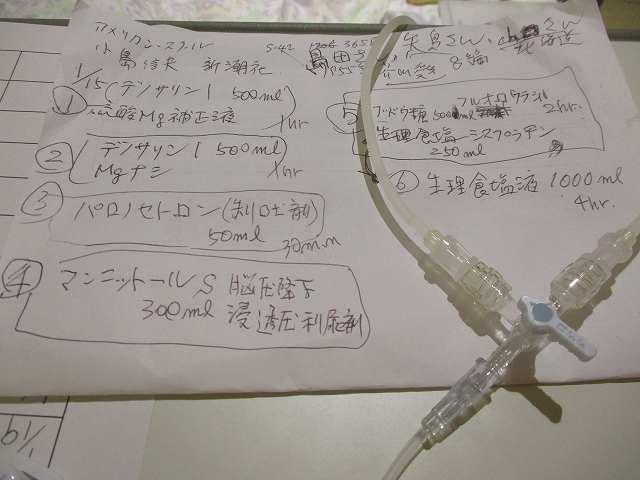 アメリカン・スクール
小島信夫 新潮社
S-42
8編
1/15
① デンサリン1 500ml
硫酸Mg補正液
1hr
② デンサリン1 500ml
Mgナシ
1hr
③ パロノセトロン(制吐剤)
50ml
30min
④ マンニットールS 脳圧降下
300ml 浸透圧利尿剤
⑤ フルオロウラシル
ブドウ糖 500ml 2hr.
生理食塩 シスプラチン
250ml
⑥ 生理食塩液 1000ml
4hr.